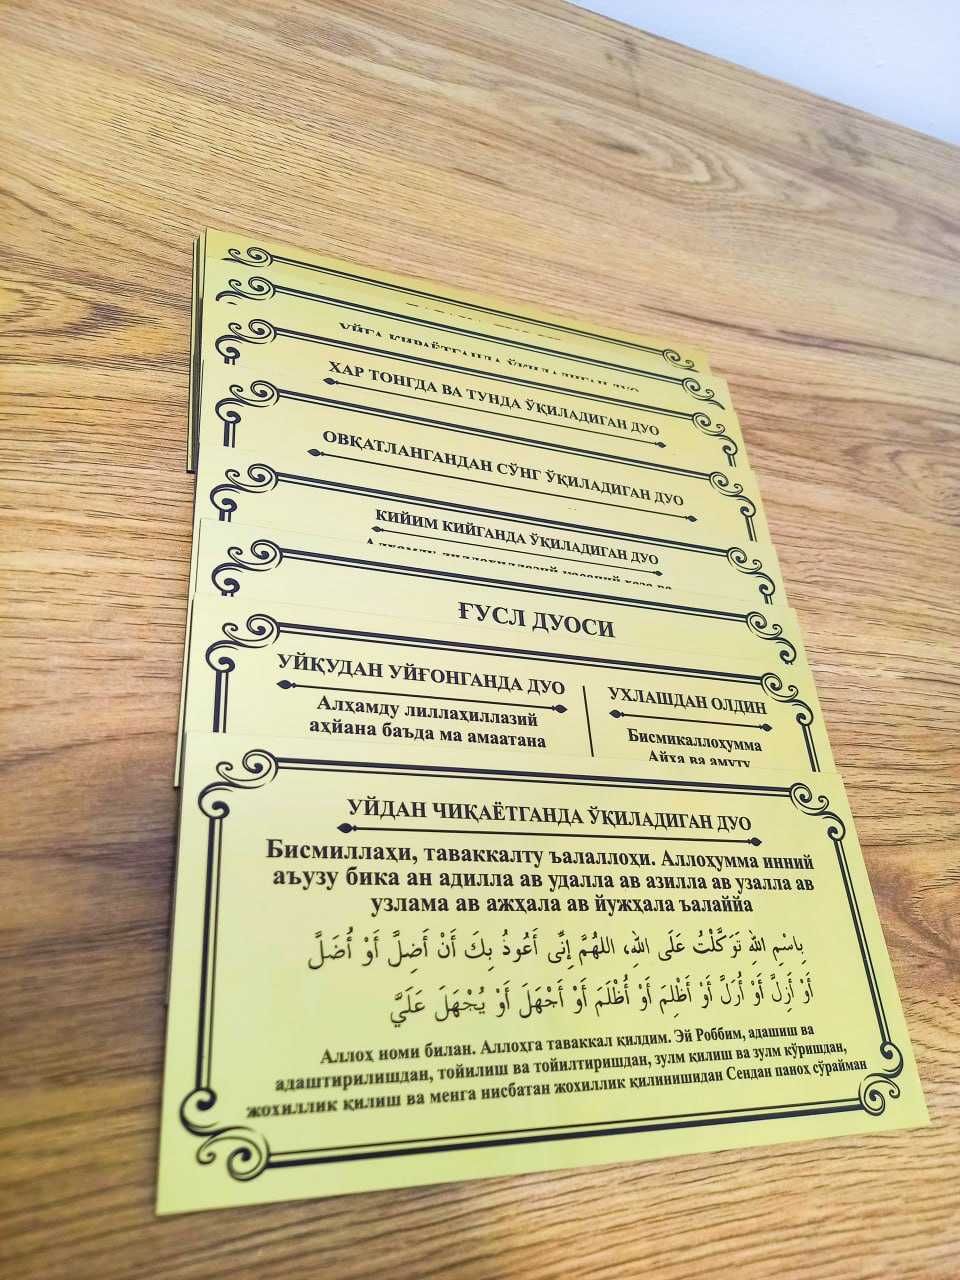 УЙГА КИРАЁТГАНДА ЎҚИЛАДИГАН ДУО
ҲАР ТОНГДА ВА ТУНДА ЎҚИЛАДИГАН ДУО
ОВҚАТЛАНГАНДАН СЎНГ ЎҚИЛАДИГАН ДУО
КИЙИМ КИЙГАНДА ЎҚИЛАДИГАН ДУО
ҒУСЛ ДУОСИ
УЙҚУДАН УЙҒОНГАНДА ДУО
Алҳамду лиллаҳиллазий
аҳйана баъда ма амаатана
УХЛАШДАН ОЛДИН
Бисмикаллоҳумма
Айҳа ва амуту
УЙДАН ЧИҚАЁТГАНДА ЎҚИЛАДИГАН ДУО
Бисмиллаҳи, таваккалту ъалаллоҳи. Аллоҳумма инний
аъузу бика ан адилла ав удалла ав азилла ав узалла ав
узлама ав ажҳала ав йужҳала ъалаййа
بِاسْمِ اللهِ تَوَكَّلْتُ عَلَى اللهِ، اللهُمَّ إِنِّى أَعُوذُ بِكَ أَنْ أَضِلَّ أَوْ أُضَلَّ
أَوْ أَزِلَّ أَوْ أُزَلَّ أَوْ أَظْلِمَ أَوْ أُظْلَمَ أَوْ أَجْهَلَ أَوْ يُجْهَلَ عَلَيَّ
Аллоҳ номи билан. Аллоҳга таваккал қилдим. Эй Роббим, адашиш ва
адаштирилишдан, тойилиш ва тойилтиришдан, зулм қилиш ва зулм кўришдан,
жоҳиллик қилиш ва менга нисбатан жоҳиллик қилинишидан Сендан паноҳ сўрайман